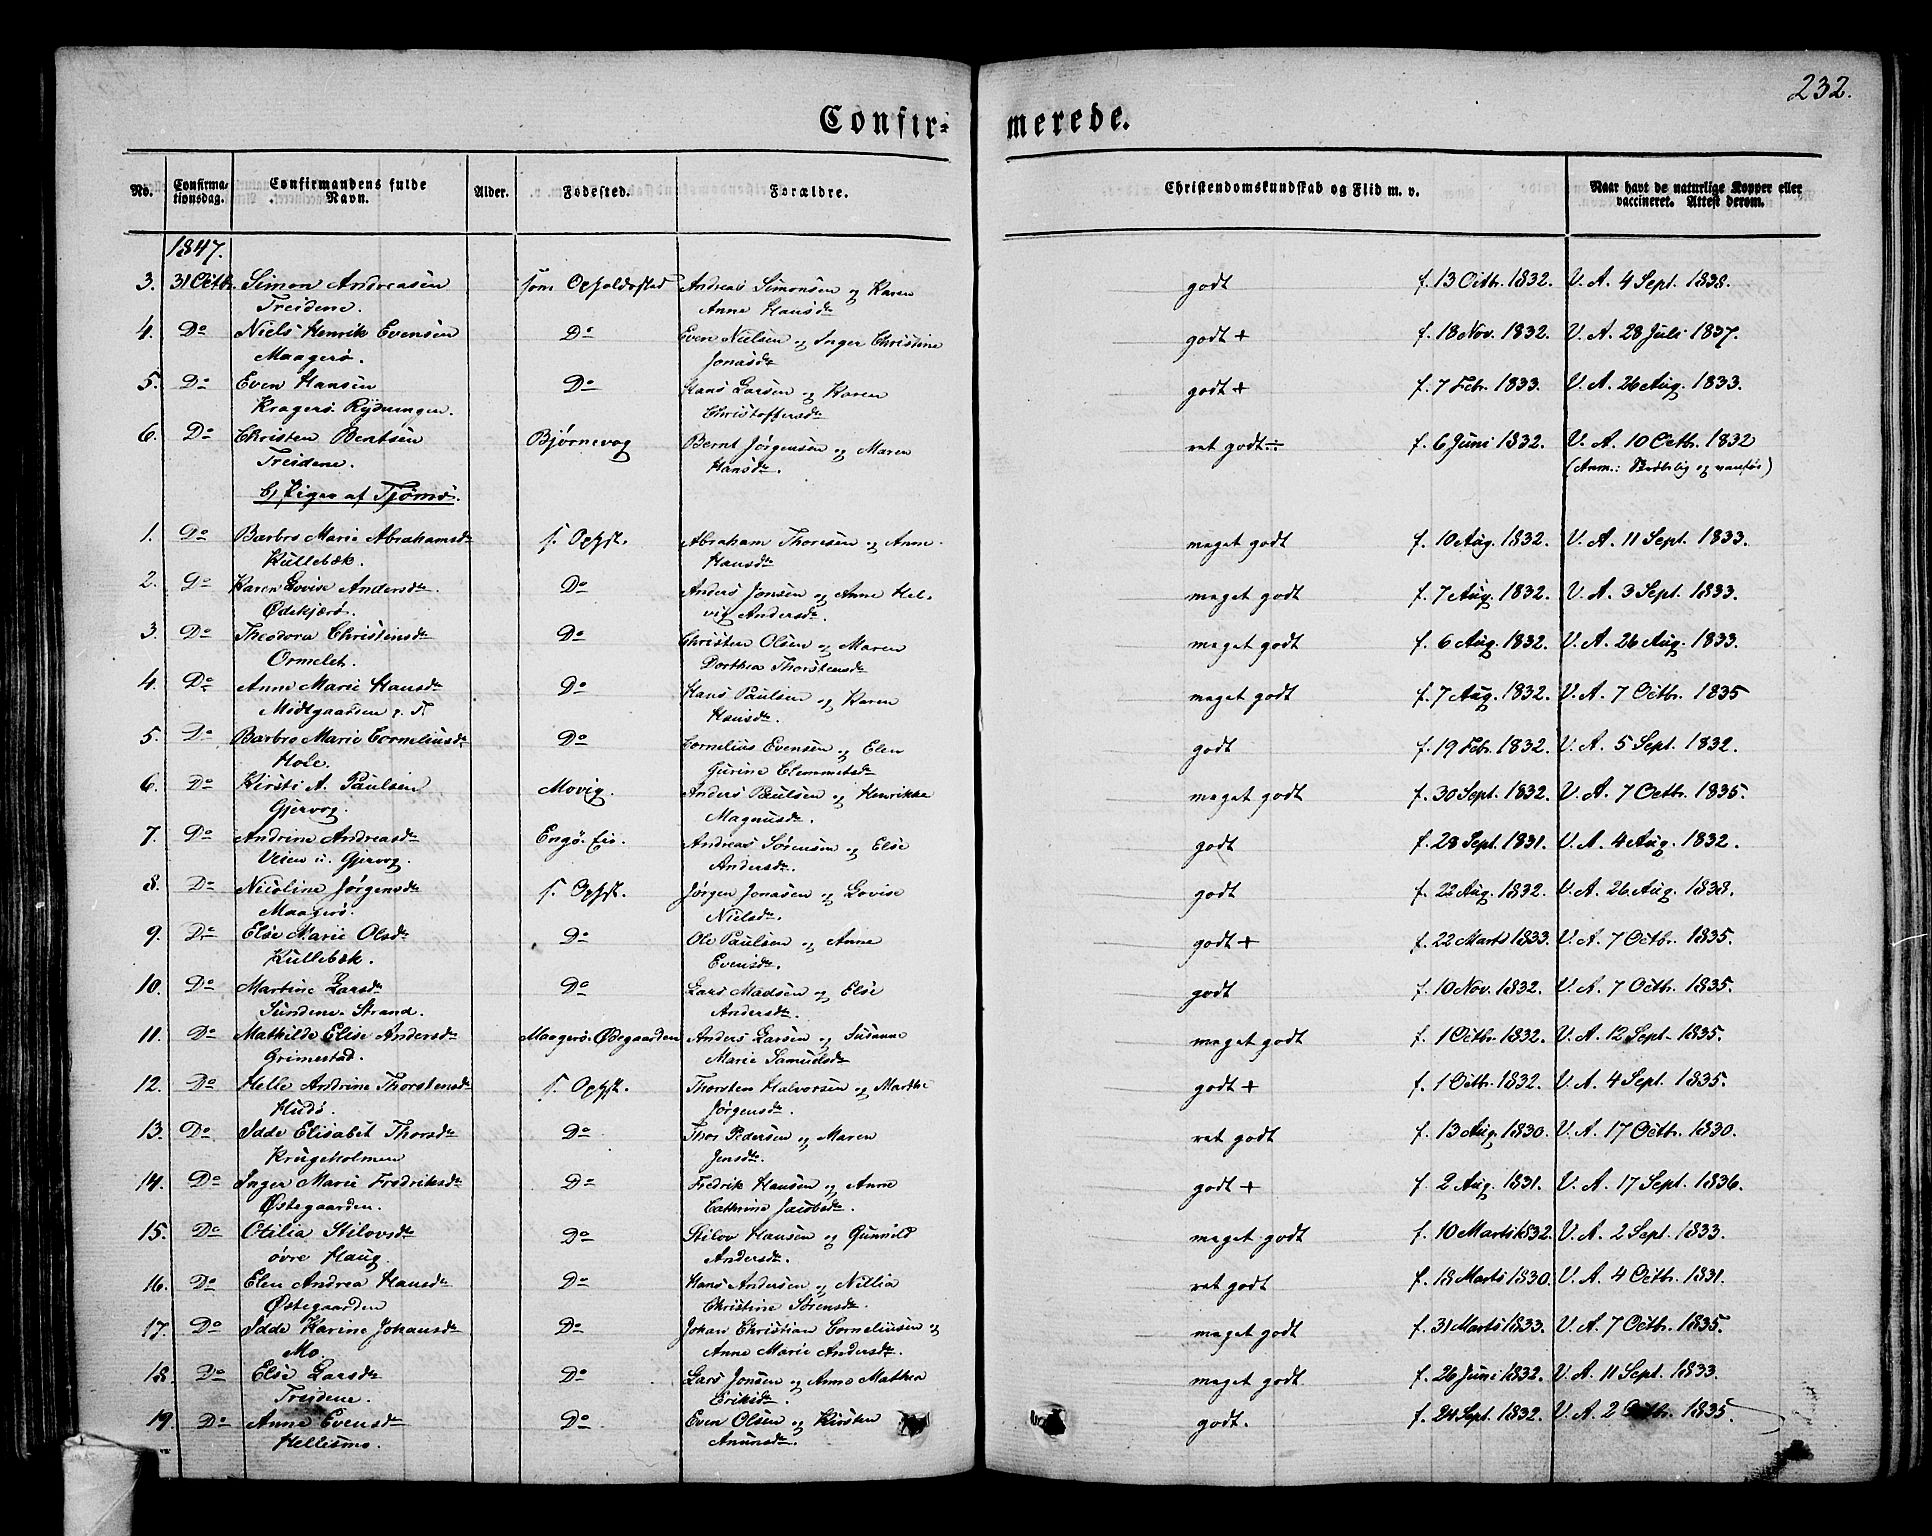 232.
Confir- merede.
No. Confirmationsdag. Confirmandens fulde Navn. Alder. Fødested. Forældre. Christendomskundskab og Flid m. v. Naar havt de naturlige Kopper eller vaccineret. Attest derom.
1847.
3. 31 Octb. Simon Andreasen som Opholdssted Andreas Simonsen og Karen godt f. 13 Octb. 1832. V. A. 4 Sept. 1838.
Treidene. Anne Hansdr
4. Do Niels Henrik Evensen Do Even Nielsen og Inger Christine godt + f. 18 Nov. 1832. V. A. 28 Juli 1837.
Maagerø. Jonasdr
5. Do Even Hansen Do Hans Larsen og Karen godt + f. 7 Febr. 1833. V. A. 26 Aug. 1833.
Kragerø Rydningen. Christoffersdr
6. Do Christen Berntsen Bjørnevog Bernt Jørgensen og Maren ret godt ÷ f. 6 Juni 1832. V. A. 10 Octb. 1832
Treidene. Hansdr. (Anm.: og vanfør)
b) Piger af Tjømø.
1. Do Barbro Marie Abrahamsdr s. Ophst. Abraham Thoresen og Anne meget godt f. 10 Aug. 1832. V. A. 11 Sept. 1833.
Kullebæk. Hansdr
2. Do Karen Lovise Andersdr. Do Anders Jonsen og Anne Hel- meget godt f. 7 Aug. 1832. V. A. 3 Sept. 1833.
Ødekjærø. vig Andersdr.
3. Do Theodora Christensdr Do Christen Olsen og Maren meget godt f. 6 Aug. 1832. V. A. 26 Aug. 1833.
Ormelet. Dorthea Thorstensdr
4. Do Anne Marie Hansdr Do Hans Paulsen og Karen meget godt f. 7 Aug. 1832. V. A. 7 Octbr. 1835
Midtgaarden p. T. Hansdr.
5. Do Barbro Marie Corneliusdr Do Cornelius Evensen og Elen godt f. 19 Febr. 1832. V. A. 5 Sept. 1832.
Hole. Gurine Clemmetsdr
6. Do Kirsti A. Paulsen Movig. Anders Paulsen og Henrikke meget godt f. 30 Sept. 1832. V. A. 7 Octbr. 1835.
Gjervog. Magnusdr.
7. Do Andrine Andreasdr Engø. Andreas Sørensen og Else godt f. 28 Sept. 1831. V. A. 4 Aug. 1832.
Veien u. Gjervog. Andersdr.
8. Do Nicoline Jørgensdr s. Ophst. Jørgen Jonasen og Lovise godt f. 22 Aug. 1832. V. A. 26 Aug. 1838.
Maagerø. Nielsdr.
9. Do Else Marie Olsdr Do Ole Paulsen og Anne godt + f. 22 Marts 1833. V. A. 7 Octbr. 1835.
Kullebæk. Evensdr.
10. Do Martine Larsdr Do Lars Madsen og Else godt f. 10 Nov. 1832. V. A. 7 Octbr. 1835.
Sundene. Strand. Andersdr.
11. Do Mathilde Elise Andersdr Maagerø. Ødegaarden Anders Larsen og Susanne meget godt f. 1 Octbr. 1832. V. A. 12 Sept. 1835.
Grimestad. Marie Samuelsdr
12. Do Helle Andrine Thorstensdr s. Ophst. Thorsten Halvorsen og Marthe godt + f. 1 Octbr. 1832. V. A. 4 Sept. 1835.
Hudø. Jørgensdr.
13. Do Idde Elisabet Thorsdr Do Thor Pedersen og Maren ret godt f. 13 Aug. 1830. V. A. 17 Octbr. 1830.
Krugeholmen Jensdr.
14. Do Inger Marie Fredriksdr Do Fredrik Hansen og Anne godt + f. 2 Aug. 1831. V. A. 17 Sept. 1836.
Østegaarden. Cathrine Jacobsdr.
15. Do Otilia Stilovsdr Do Stilov Hansen og Gunnild meget godt f. 10 Marts 1832. V. A. 2 Sept. 1833.
øvre Haug. Andersdr.
16. Do Elen Andrea Hansdr Do Hans Andersen og Nillia ret godt f. 18 Marts 1830. V. A. 4 Octbr. 1831.
Østegaarden Christine Sørensdr.
17. Do Idde Karine Johansdr Do Johan Christian Corneliusen og meget godt f. 31 Marts 1833. V. A. 7 Octbr. 1835.
Mo. Anne Marie Andersdr.
18. Do Else Larsdr Do Lars Jonsen og Anne Mathea meget godt f. 26 Juni 1832. V. A. 11 Sept. 1833.
Treidene. Eriksdr.
19. Do Anne Evensdr Do Even Olsen og Kirsten godt. f. 24 Sept. 1832. V. A. 2 Octbr. 1835.
Hellismo. Amundsdr.